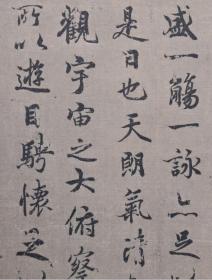 盛一觴一詠亦足
是日也天朗氣清
觀宇宙之大俯察
所以遊目騁懷足